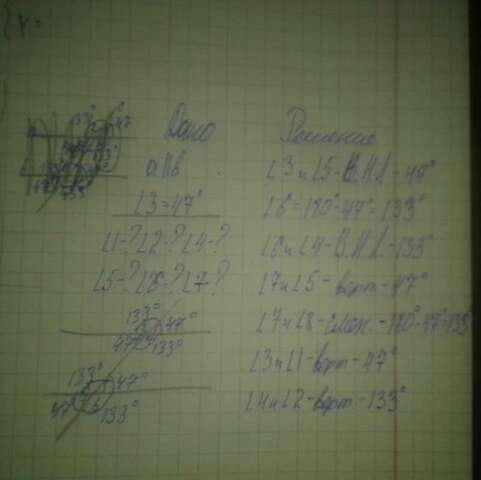 Дано
a||b
∠3=47°
∠1-? ∠2-? ∠4-?
∠5-? ∠6-? ∠7-?
133° 47°
47° 133°
133° 47°
47° 133°
Решение
∠3 и ∠5-В.Н.Л.-47°
∠6=180°-47°=133°
∠6 и ∠4-В.Н.Л.-133°
∠7 и ∠5-верт-47°
∠7 и ∠8-смеж.-180°-47°=133°
∠3 и ∠1-верт-47°
∠4 и ∠2-верт-133°